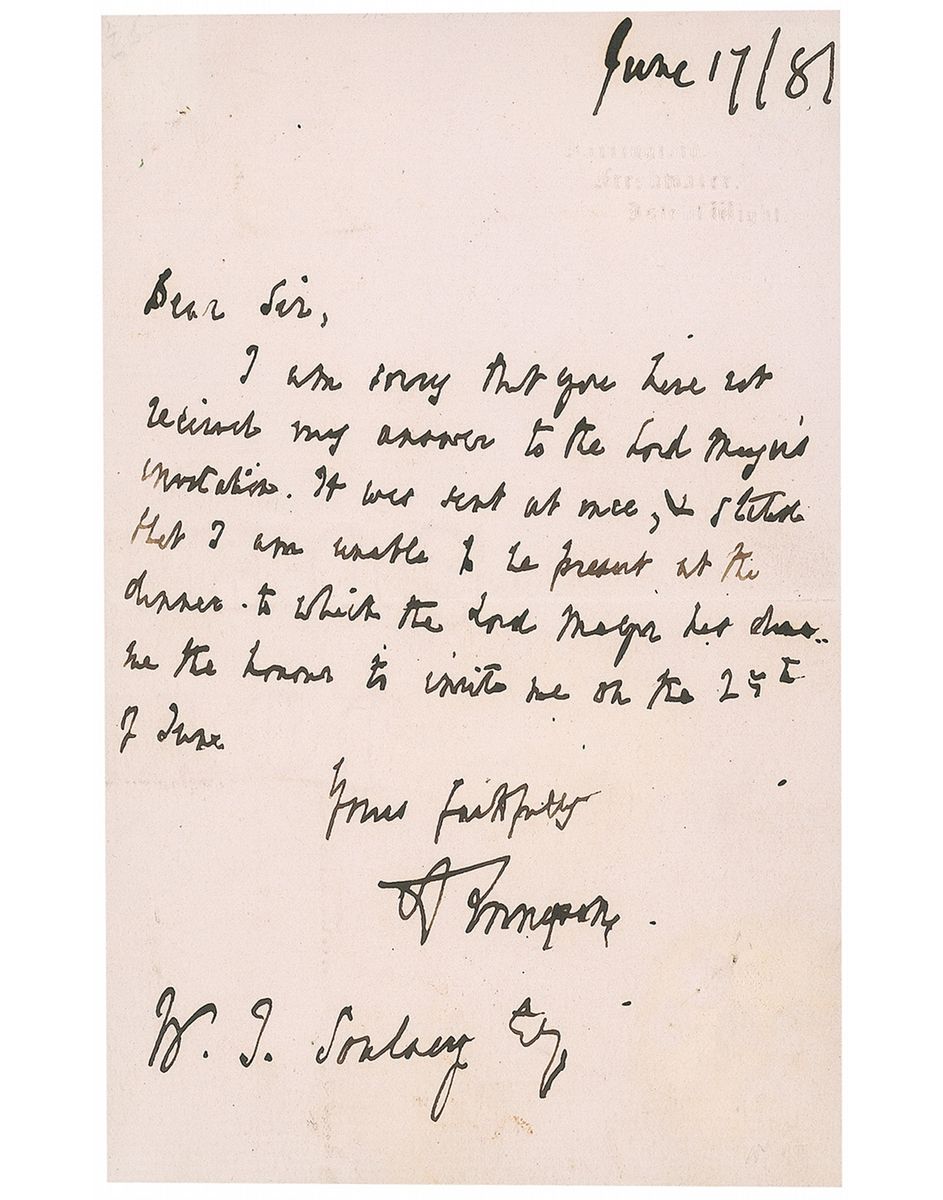 June 17/81
Farringford,
Freshwater,
Isle of Wight.
Dear Sir,
I am sorry that you have not
received my answer to the Lord Mayor's
invitation. It was sent at once, & stated
that I am unable to be present at the
dinner to which the Lord Mayor has done
me the honour to invite me on the 25th
of June
Yours faithfully
A Tennyson.
W. J. Soulsby Esq